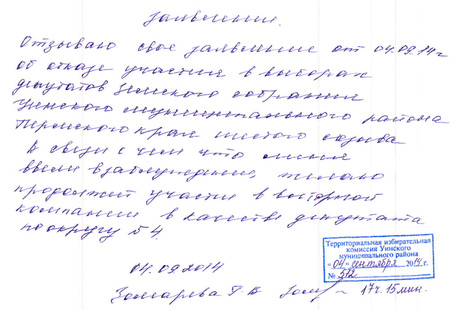 Заявление.
Отзываю свое заявление от 04.09.14г
об отказе участие в выборах
депутатов Земского собрания
Уинского муниципального района
Пермского края шестого созыва
В связи с чем что меня
ввели в заблуждение, желаю
продолжить участие в выборной
компании в качестве депутата
по округу №4.
04.09.2014
17ч 15мин.
Территориальная избирательная
комиссия Уинского
муниципального района
"04" сентября 2014г.
№ 512